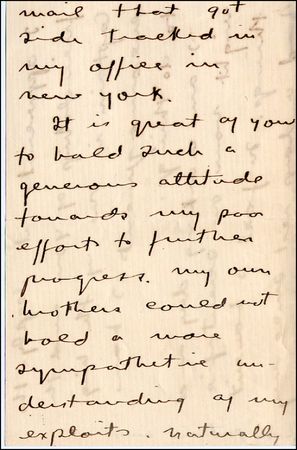 mail that got
side tracked in
my office in
new york.
It is great of you
to hold such a
generous attitude
towards my poor
efforts to further
progress. my own
brothers could not
hold a more
sympathetic un-
derstanding of my
exploits. naturally